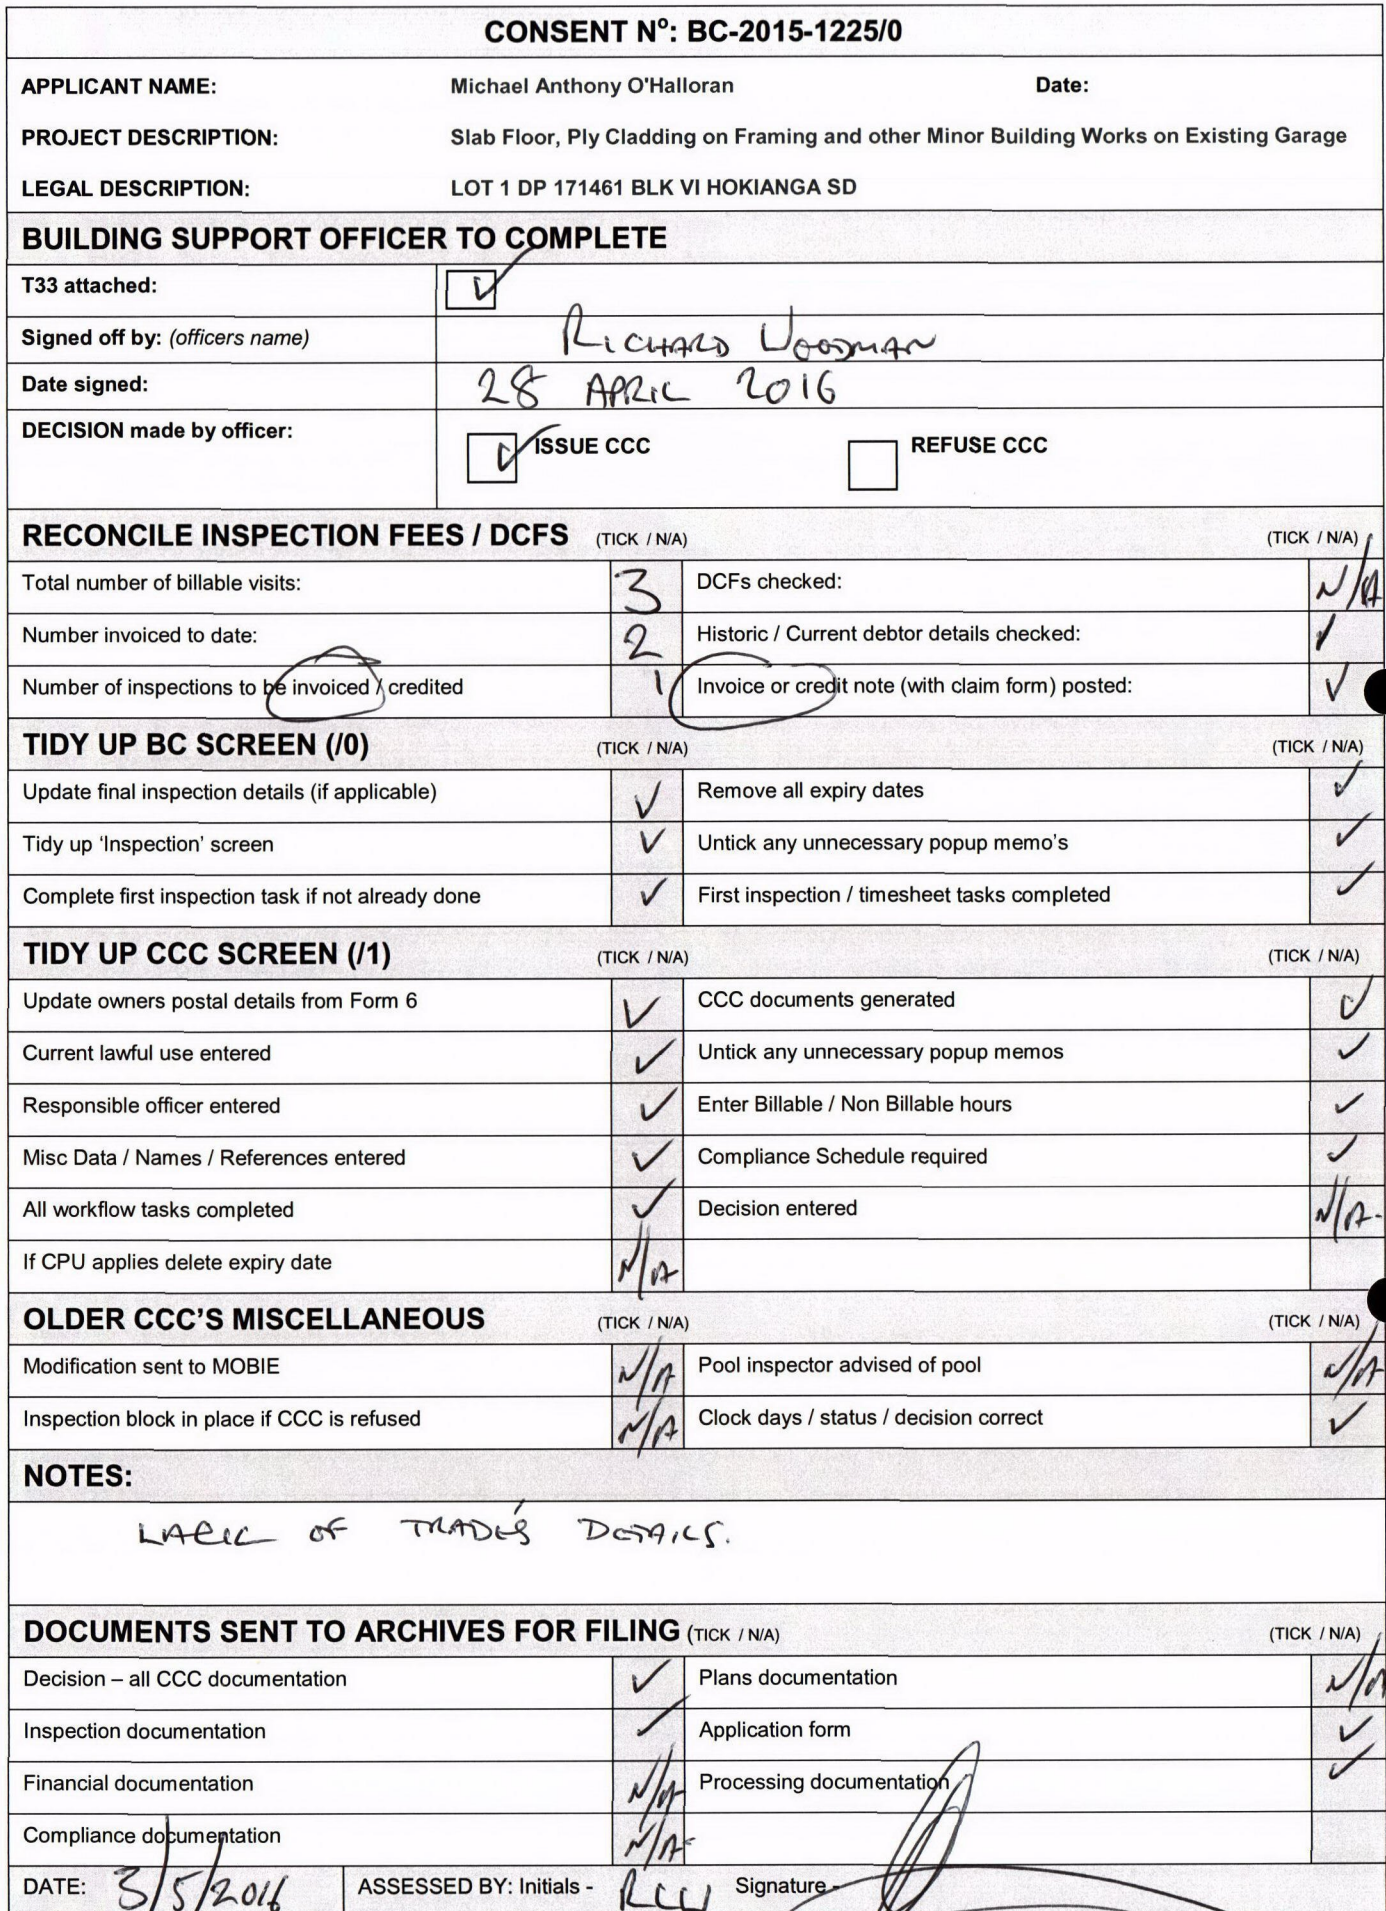 CONSENT Nº: BC-2015-1225/0
APPLICANT NAME: Michael Anthony O'Halloran Date:
PROJECT DESCRIPTION: Slab Floor, Ply Cladding on Framing and other Minor Building Works on Existing Garage
LEGAL DESCRIPTION: LOT 1 DP 171461 BLK VI HOKIANGA SD
BUILDING SUPPORT OFFICER TO COMPLETE
T33 attached: ✓
Signed off by: (officers name) RICHARD WOODMAN
Date signed: 28 APRIL 2016
DECISION made by officer: ✓ ISSUE CCC REFUSE CCC
RECONCILE INSPECTION FEES / DCFS (TICK / N/A) (TICK / N/A)
Total number of billable visits: 3 DCFs checked: N/A
Number invoiced to date: 2 Historic / Current debtor details checked: ✓
Number of inspections to be invoiced / credited 1 Invoice or credit note (with claim form) posted: ✓
TIDY UP BC SCREEN (/0) (TICK / N/A) (TICK / N/A)
Update final inspection details (if applicable) ✓ Remove all expiry dates ✓
Tidy up ‘Inspection’ screen ✓ Untick any unnecessary popup memo’s ✓
Complete first inspection task if not already done ✓ First inspection / timesheet tasks completed ✓
TIDY UP CCC SCREEN (/1) (TICK / N/A) (TICK / N/A)
Update owners postal details from Form 6 ✓ CCC documents generated ✓
Current lawful use entered ✓ Untick any unnecessary popup memos ✓
Responsible officer entered ✓ Enter Billable / Non Billable hours ✓
Misc Data / Names / References entered ✓ Compliance Schedule required ✓
All workflow tasks completed ✓ Decision entered N/A.
If CPU applies delete expiry date N/A
OLDER CCC’S MISCELLANEOUS (TICK / N/A) (TICK / N/A)
Modification sent to MOBIE N/A Pool inspector advised of pool N/A
Inspection block in place if CCC is refused N/A Clock days / status / decision correct ✓
NOTES:
LACK OF TRADE'S DETAILS.
DOCUMENTS SENT TO ARCHIVES FOR FILING (TICK / N/A) (TICK / N/A)
Decision – all CCC documentation ✓ Plans documentation N/A
Inspection documentation ✓ Application form ✓
Financial documentation N/A Processing documentation ✓
Compliance documentation N/A
DATE: 3/5/2016 ASSESSED BY: Initials - RCW Signature -